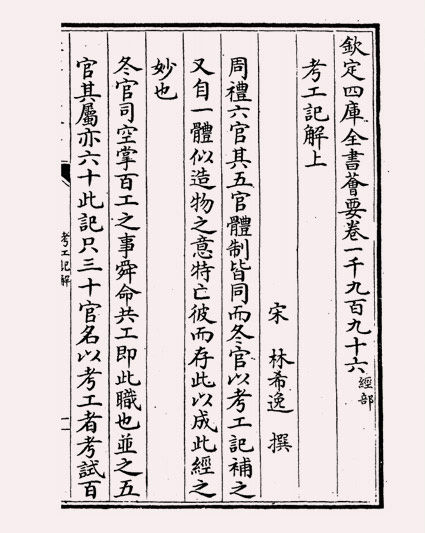 欽定四庫全書薈要卷一千九百九十六 經部
考工記解上
宋 林希逸 撰
周禮六官其五官體制皆同而冬官以考工記補之
又自一體似造物之意特亡彼而存此以成此經之
妙也
冬官司空掌百工之事舜命共工即此職也並之五
官其屬亦六十此記只三十官名以考工者考試百
考工記解